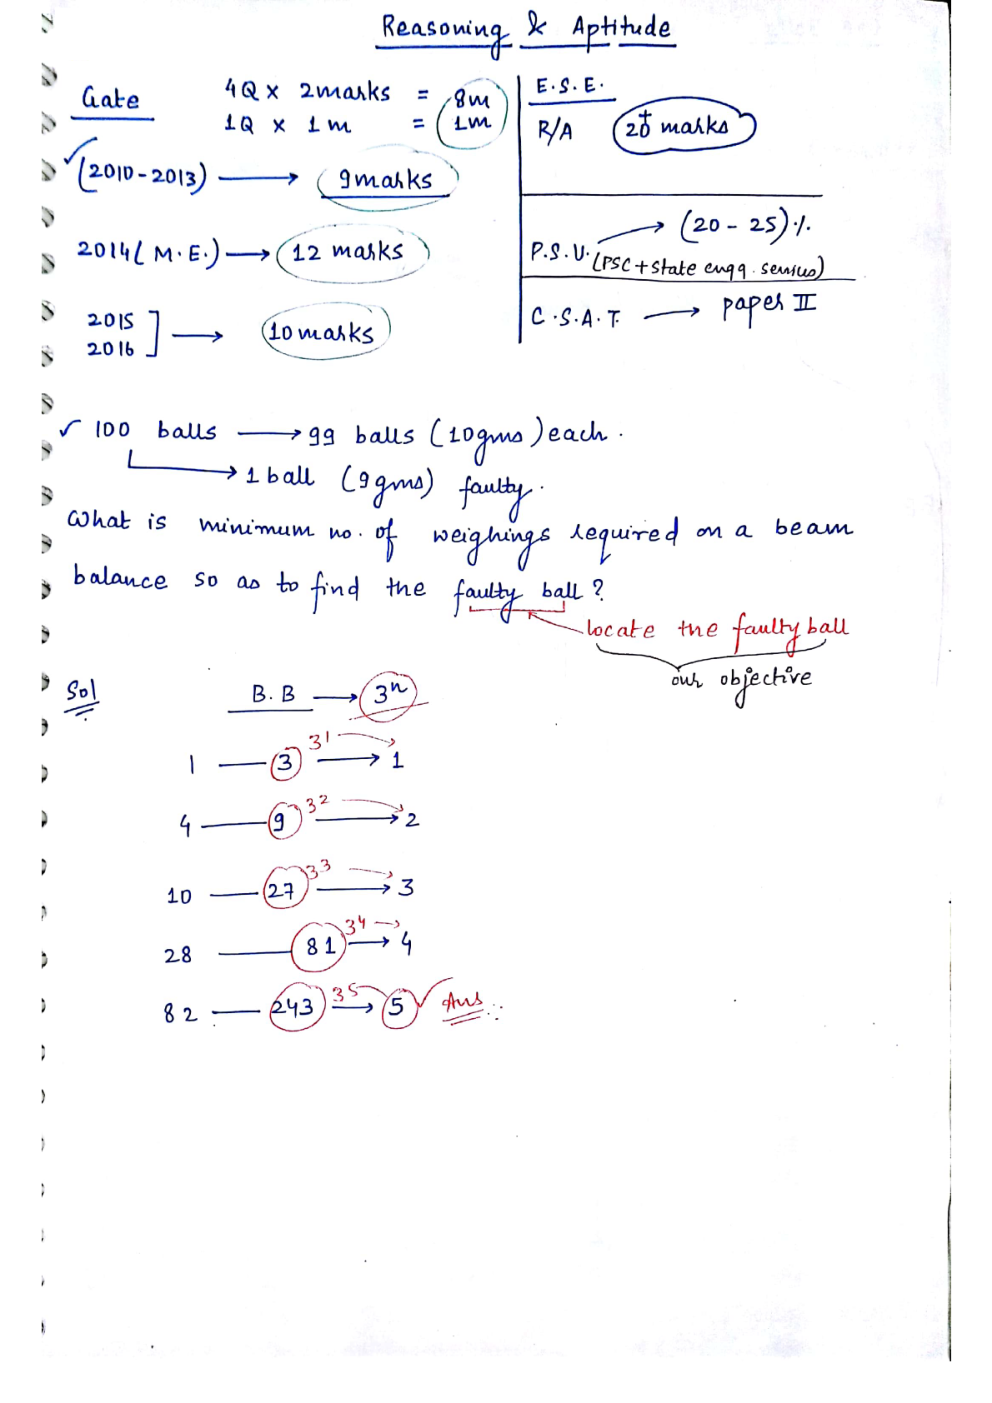 Reasoning & Aptitude
Gate
4Q x 2marks = 8m
1Q x 1m = 1m
(2010-2013) → 9marks
2014(M.E.) → 12 marks
2015
2016 ] → 10marks
E.S.E.
R/A 20+ marks
P.S.U. → (20-25)%
(PSC + State engg. services)
C.S.A.T. → paper II
✓ 100 balls → 99 balls (10gms) each.
→ 1 ball (9gms) faulty.
What is minimum no. of weighings required on a beam
balance so as to find the faulty ball?
locate the faulty ball
our objective
Sol
B.B → 3ⁿ
1 — 3 3¹ → 1
4 — 9 3² → 2
10 — 27 3³ → 3
28 — 81 3⁴ → 4
82 — 243 3⁵ → 5 ✓ Ans